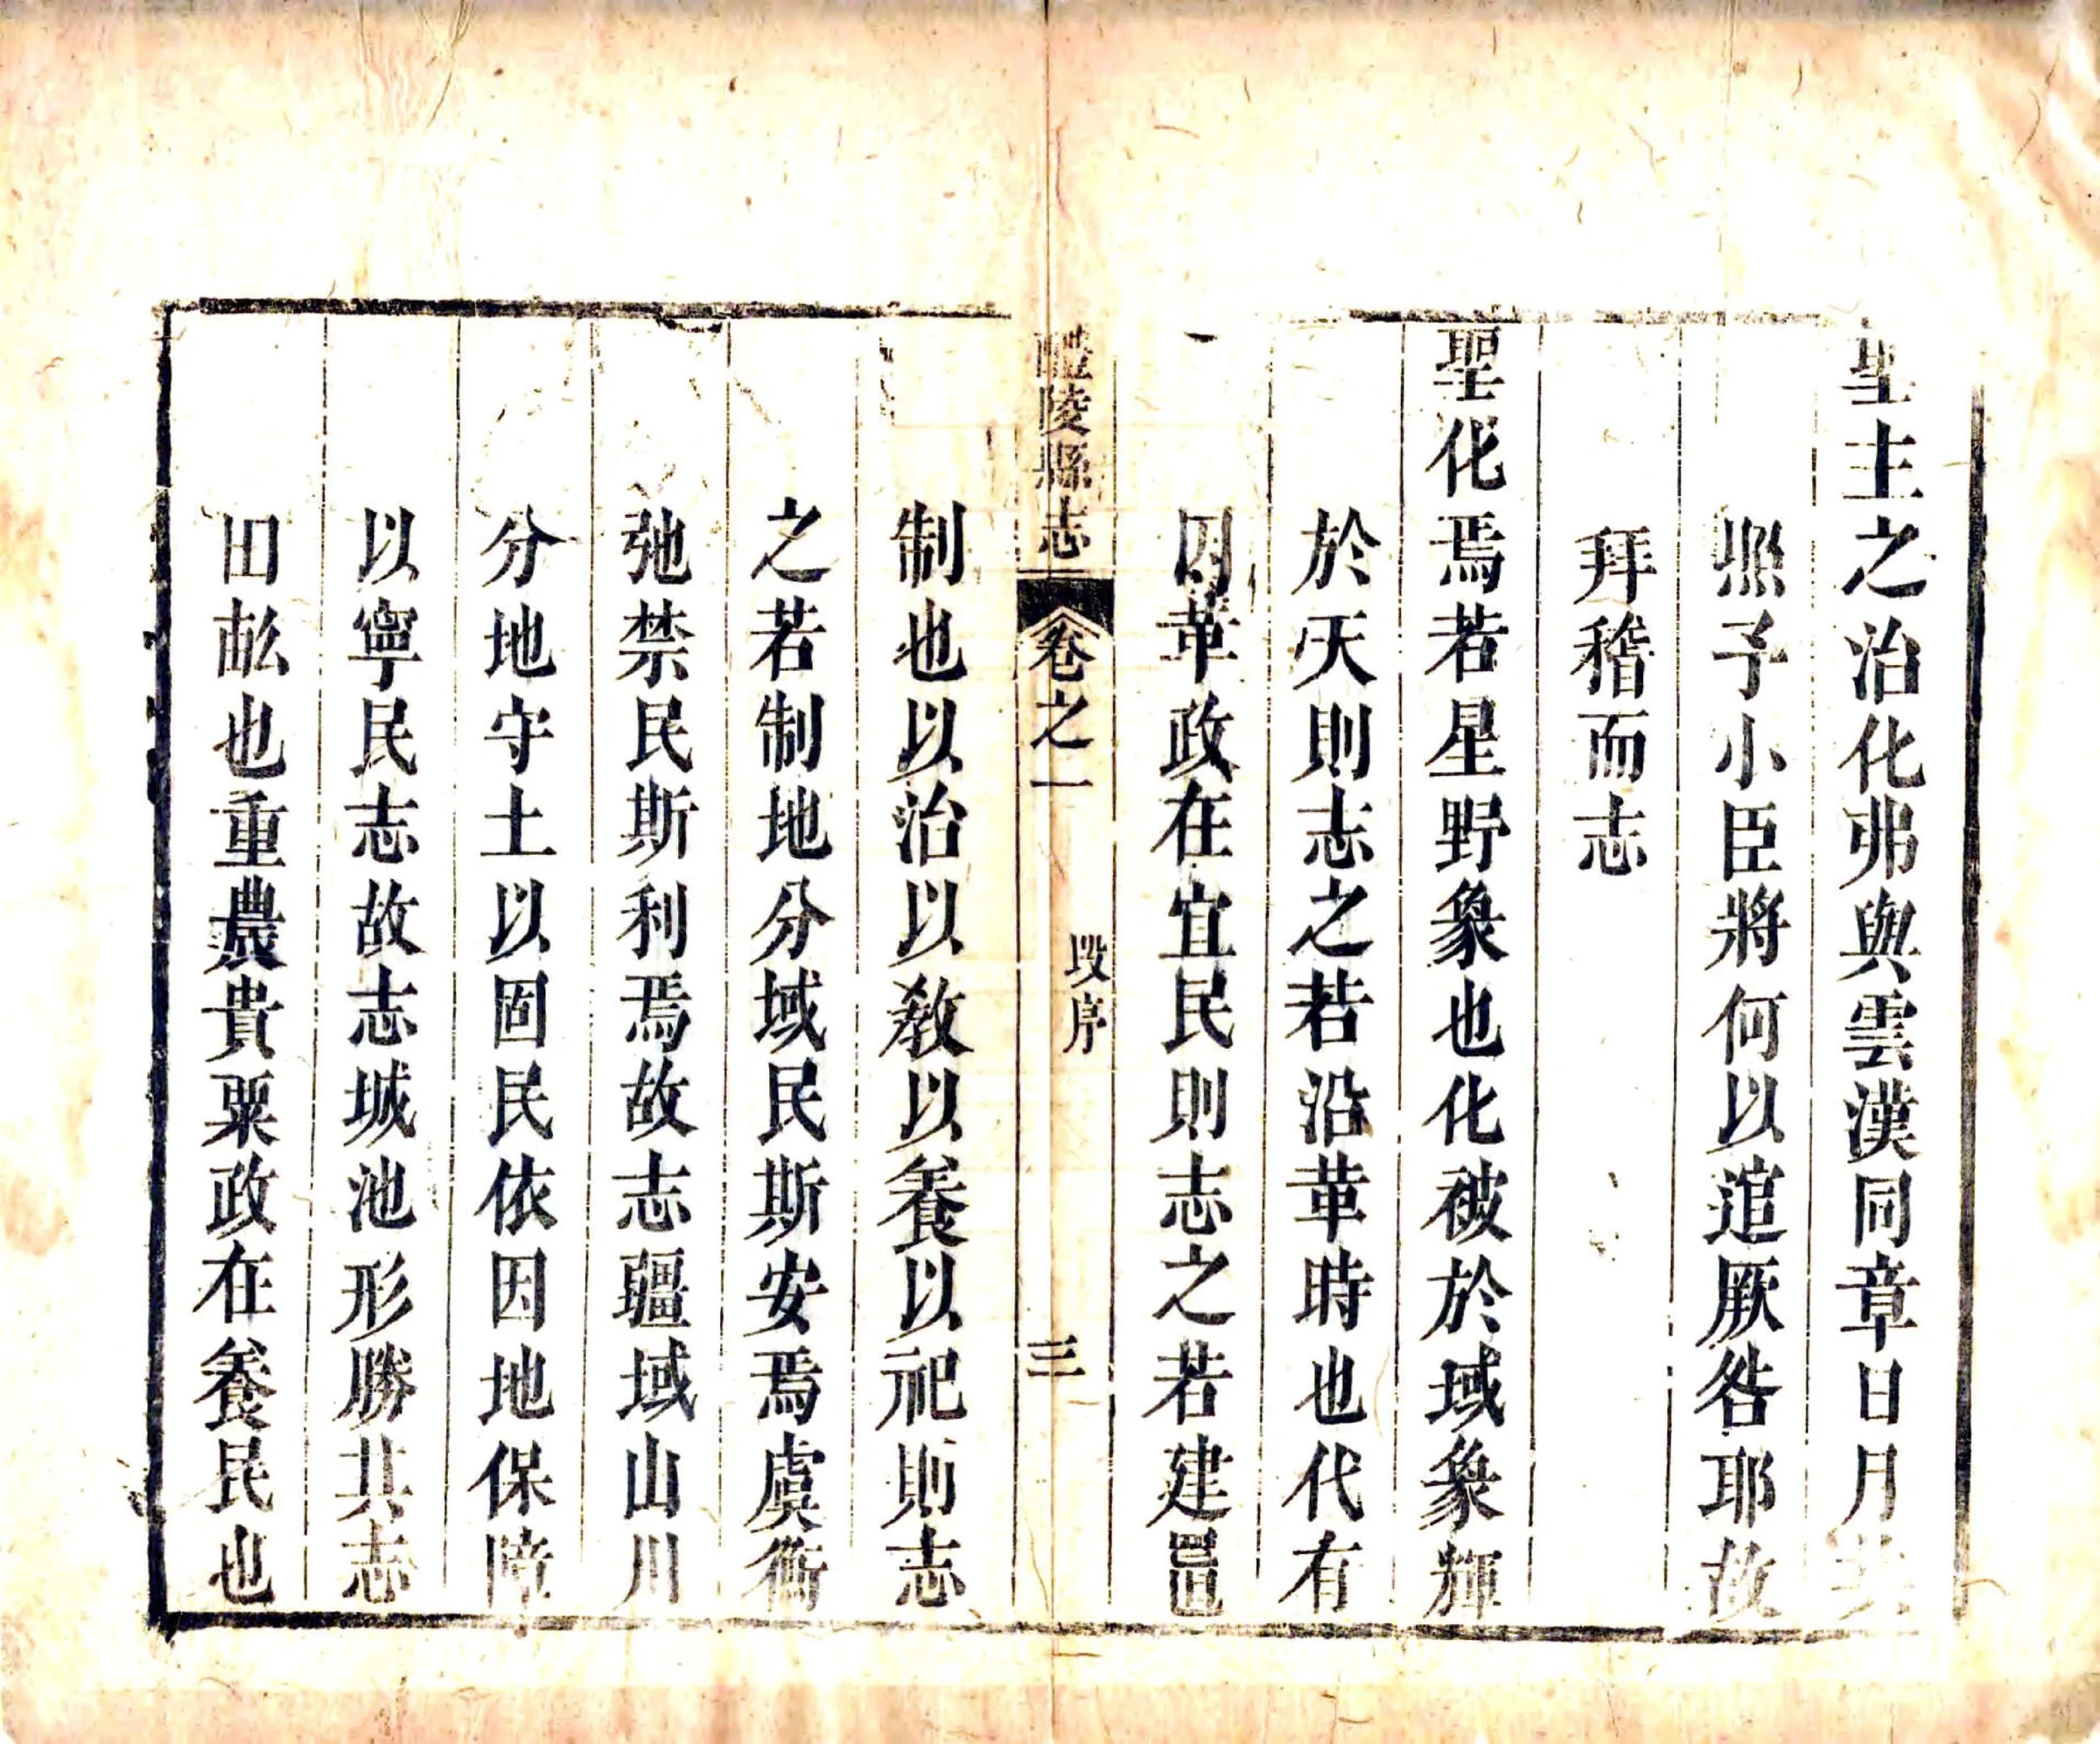 聖主之治化弗與雲漢同章日月
照予小臣將何以逭厥咎耶故
拜稽而志
聖化焉若星野象也化被於域象輝
於天則志之若沿革時也代有
因革政在宜民則志之若建置
醴陵縣志
卷之一
段序
三
制也以治以教以養以祀則志
之若制地分域民斯安焉虞衡
弛禁民斯利焉故志疆域山川
分地守土以固民依因地保障
以寧民志故志城池形勝共志
田畝也重農貴粟政在養民也